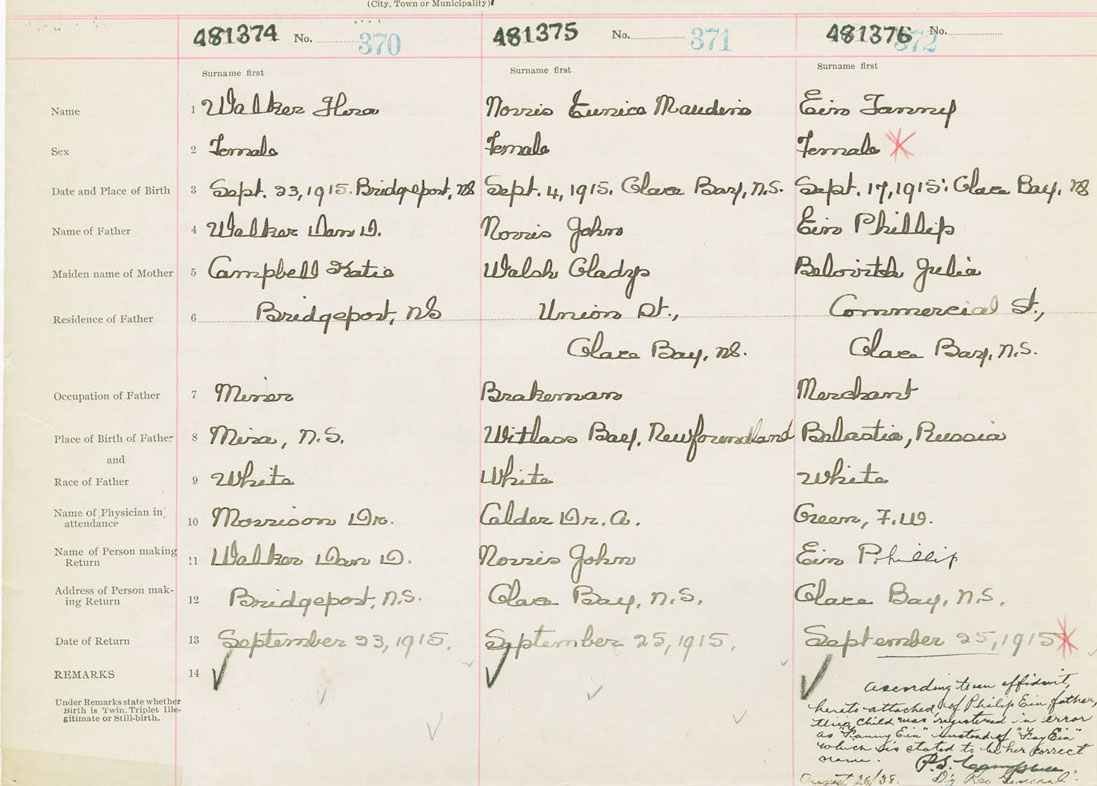 (City, Town or Municipality)
481374 No. 370 481375 No. 371 481376 No. 372
Surname first Surname first Surname first
Name 1 Walker Flora Norris Eunice Maudine Ein Fanny
Sex 2 Female Female Female
Date and Place of Birth 3 Sept. 23, 1915. Bridgeport, NS Sept. 4, 1915. Glace Bay, N.S. Sept. 17, 1915. Glace Bay, NS
Name of Father 4 Walker Dan D. Norris John Ein Phillip
Maiden name of Mother 5 Campbell Katie Walsh Gladys Julia
Residence of Father 6 Bridgeport, NS Union St., Commercial St.,
Glace Bay, NS. Glace Bay, N.S.
Occupation of Father 7 Miner Brakeman Merchant
Place of Birth of Father 8 Mira, N.S. Witlass Bay, Newfoundland Balastia, Russia
and
Race of Father 9 White White White
Name of Physician in
attendance 10 Morrison Dr. Calder Dr. A. Green, F.W.
Name of Person making
Return 11 Walker Dan D. Norris John Ein Phillip
Address of Person mak-
ing Return 12 Bridgeport, N.S. Glace Bay, N.S. Glace Bay, N.S.
Date of Return 13 September 23, 1915. September 25, 1915. September 25, 1915
REMARKS 14
Under Remarks state whether
Birth is Twin, Triplet Ille-
gitimate or Still-birth.
affidavit,
hereto attached, of Philip Ein father,
this child was registered in error
as "Fanny Ein" instead of "Fay Ein"
which is stated to be her correct
name.
August 26/38. D'y Reg General.